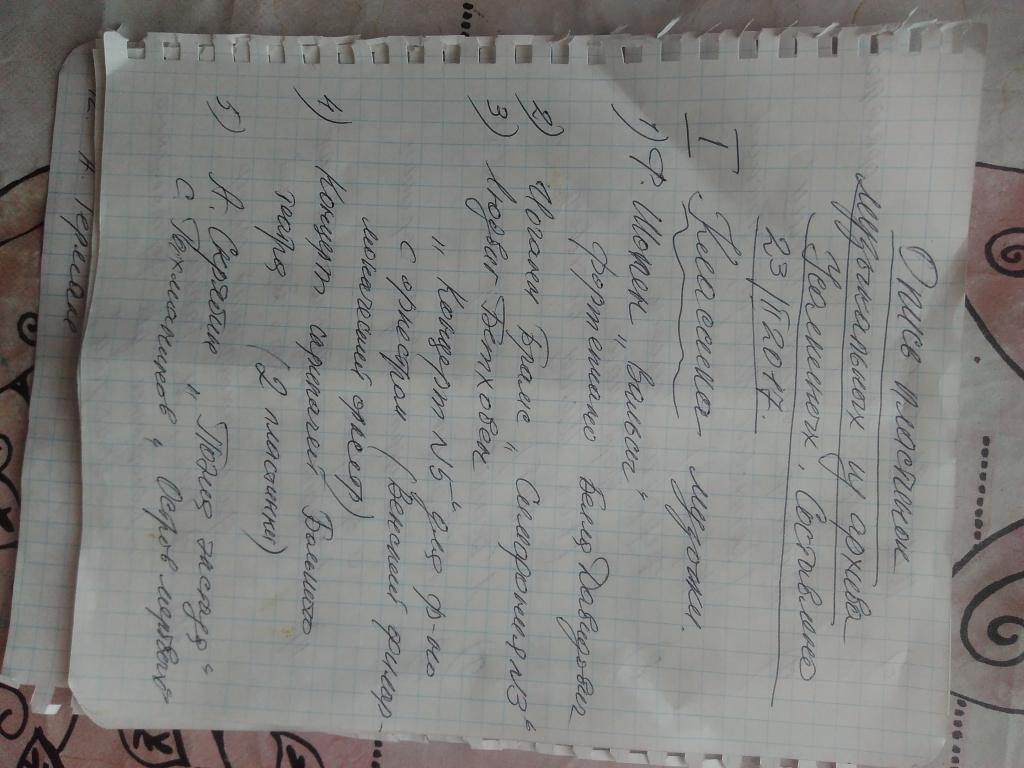 Опись пластинок
музыкальных у архива
Ивлениных, Составлено
23/II 2017.
I Классика музыки.
1) Ф. Шопен "Вальсы"
фортепиано Белла Давидович
2) Иоганн Брамс "Симфония №3"
3) Людвиг Бетховен
"Концерт №5" для ф-но
с оркестром (Венский филар-
монический оркестр)
4) Концерт артистов Большого
театра (2 пластинки)
5) А. Скрябин "Поэма экстаза"
С. Рахманинов "Остров мертвых"